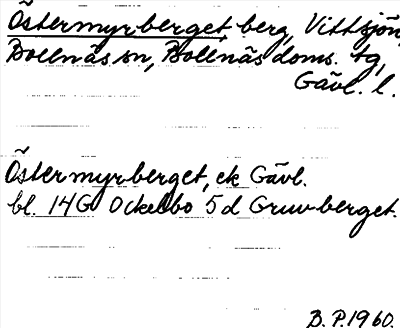 Östermyrberget, berg, Vittsjön,
Bollnäs sn, Bollnäs doms. tg,
Gävl. l.
Östermyrberget, ek Gävl.
bl. 14G Ockelbo 5d Gruvberget.
B. P. 1960.